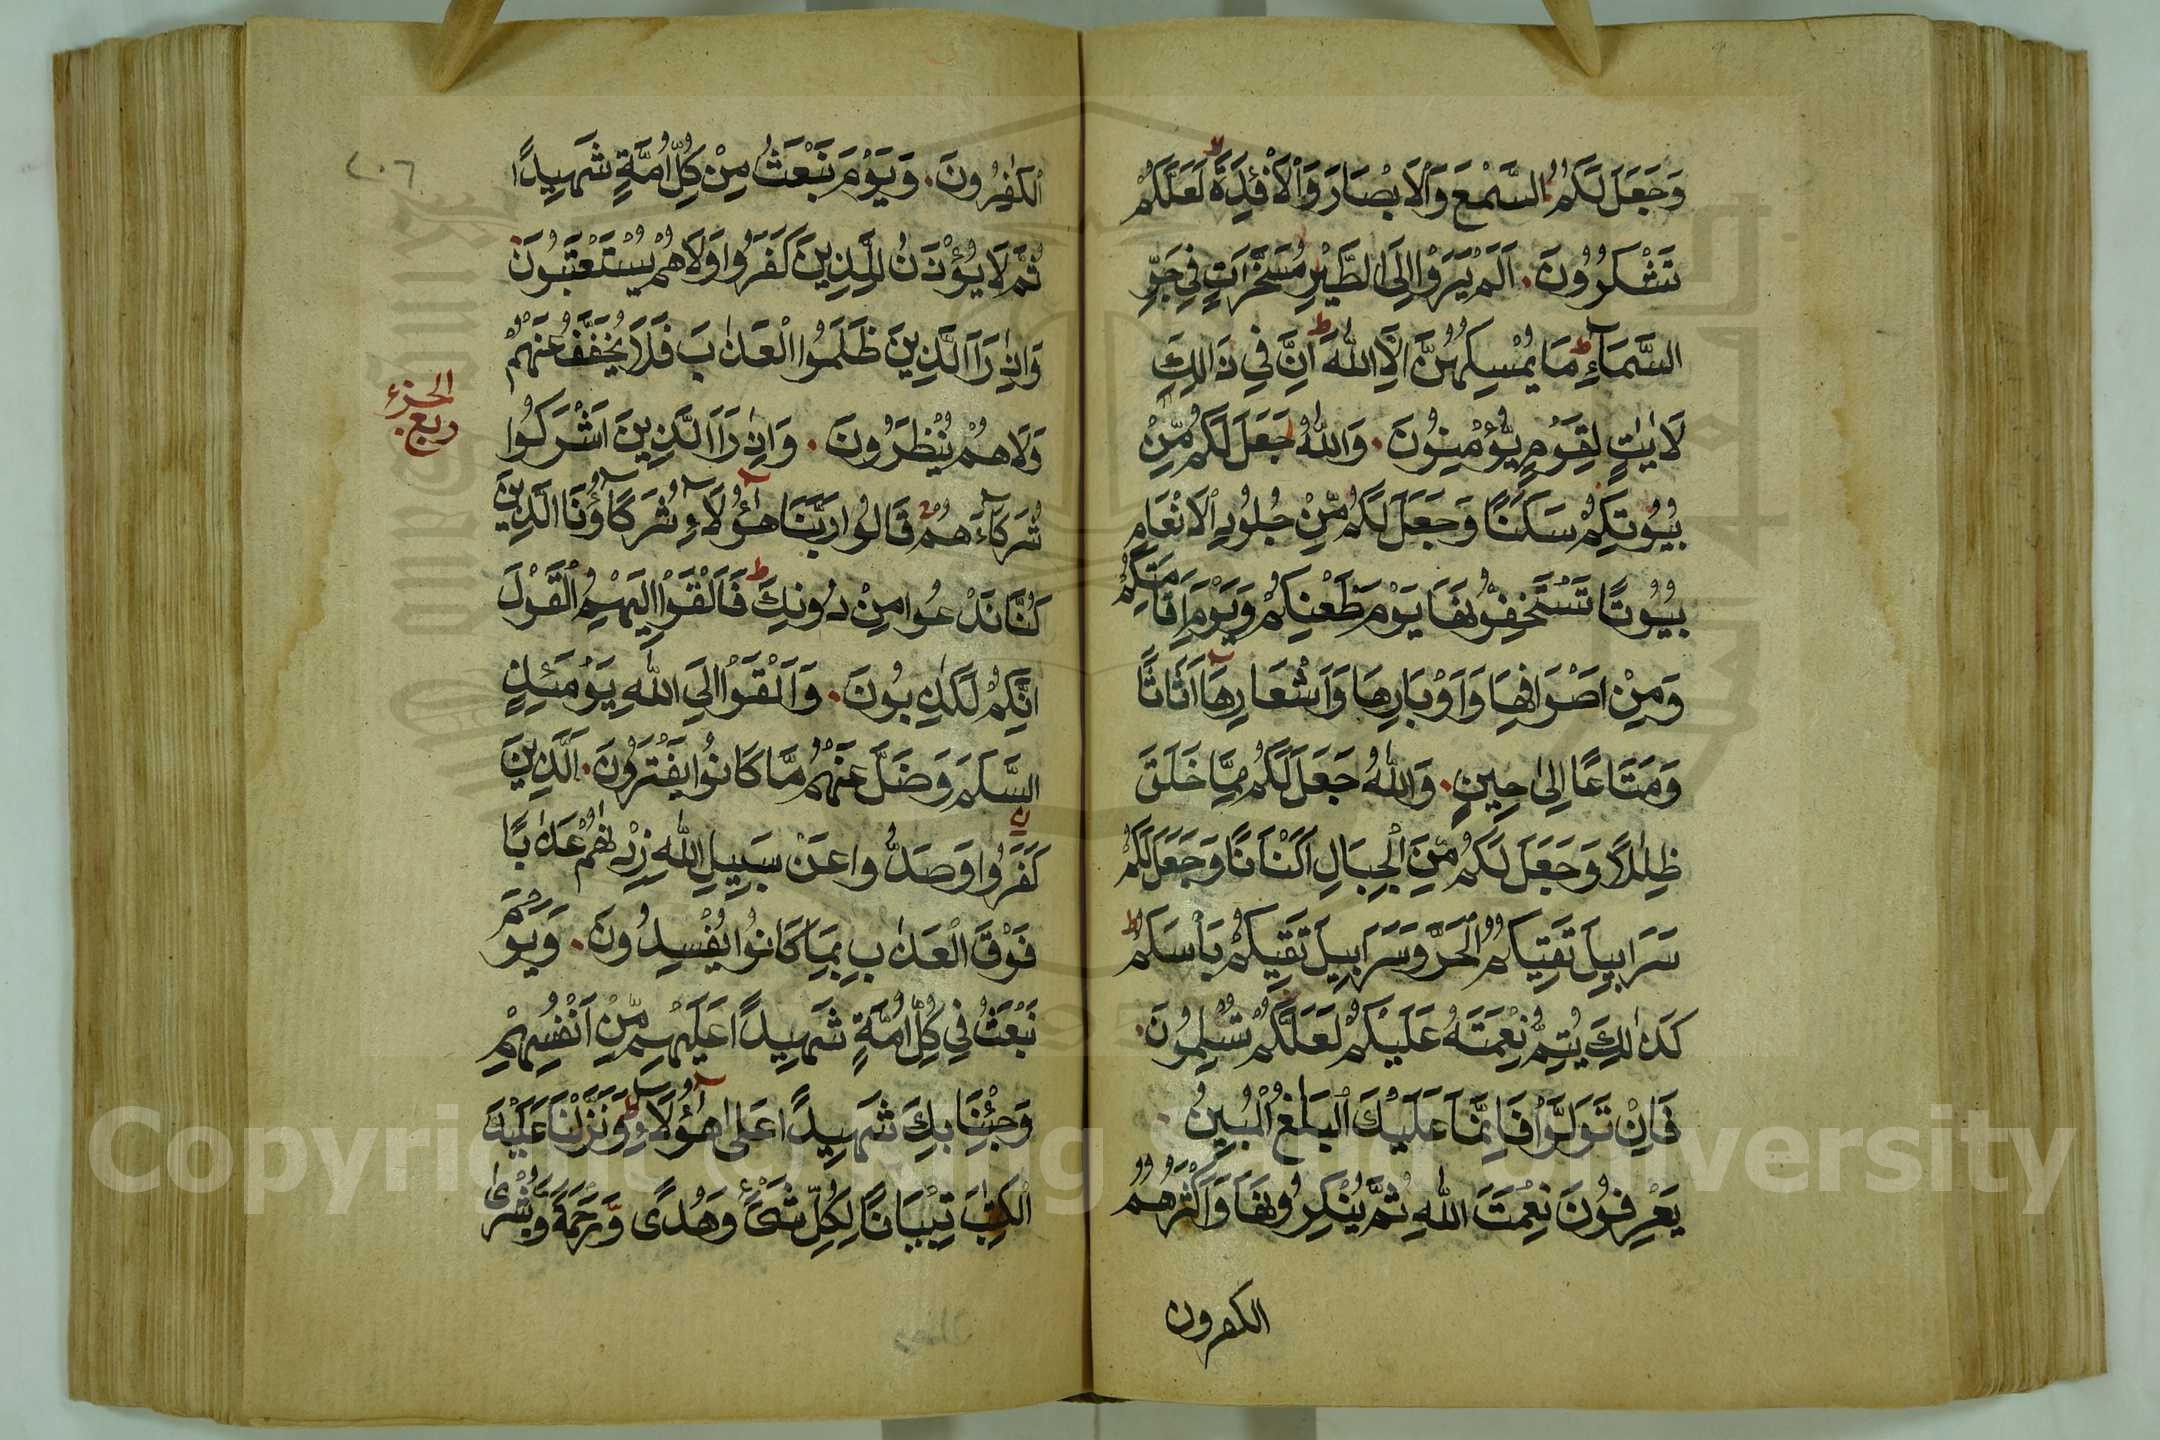 وَجَعَلَ لَكُمُ السَّمْعَ وَالْاَبْصَارَ وَالْاَفْئِدَةَ لَعَلَّكُمْ
تَشْكُرُونَ. اَلَمْ يَرَوْا اِلَى الطَّيْرِ مُسَخَّرَاتٍ فِي جَوِّ
السَّمَآءِ ط مَا يُمْسِكُهُنَّ اِلَّا اللّٰهُ ط اِنَّ فِي ذَالِكَ
لَاٰيٰتٍ لِقَوْمٍ يُّؤْمِنُونَ. وَاللّٰهُ جَعَلَ لَكُمْ مِّنْ
بُيُوتِكُمْ سَكَنًا وَجَعَلَ لَكُمْ مِّنْ جُلُودِ الْاَنْعَامِ
بُيُوتًا تَسْتَخِفُّونَهَا يَوْمَ ظَعْنِكُمْ وَيَوْمَ اِقَامَتِكُمْ
وَمِنْ اَصْوَافِهَا وَاَوْبَارِهَا وَاَشْعَارِهَآ اَثَاثًا
وَمَتَاعًا اِلىٰ حِينٍ. وَاللّٰهُ جَعَلَ لَكُمْ مِّمَّا خَلَقَ
ظِلٰلًا وَجَعَلَ لَكُمْ مِّنَ الْجِبَالِ اَكْنَانًا وَجَعَلَ لَكُمْ
سَرَابِيلَ تَقِيكُمُ الْحَرَّ وَسَرَابِيلَ تَقِيكُمْ بَأْسَكُمْ ط
كَذٰلِكَ يُتِمُّ نِعْمَتَهُ عَلَيْكُمْ لَعَلَّكُمْ تُسْلِمُونَ.
فَاِنْ تَوَلَّوْا فَاِنَّمَا عَلَيْكَ الْبَلٰغُ الْمُبِينُ.
يَعْرِفُونَ نِعْمَتَ اللّٰهِ ثُمَّ يُنْكِرُونَهَا وَاَكْثَرُهُمُ
الكفرون
٢٠٦
الْكٰفِرُونَ. وَيَوْمَ نَبْعَثُ مِنْ كُلِّ اُمَّةٍ شَهِيدًا
ثُمَّ لَا يُؤْذَنُ لِلَّذِينَ كَفَرُوا وَلَاهُمْ يُسْتَعْتَبُونَ
وَاِذَا رَاَ الَّذِينَ ظَلَمُوا الْعَذَابَ فَلَا يُخَفَّفُ عَنْهُمْ
وَلَاهُمْ يُنْظَرُونَ. وَاِذَا رَاَ الَّذِينَ اَشْرَكُوا
الجزء
ربع
شُرَكَآءَهُمْ قَالُوا رَبَّنَا هٰٓؤُلَآءِ شُرَكَآؤُنَا الَّذِينَ
كُنَّا نَدْعُوا مِنْ دُونِكَ ط فَاَلْقَوْا اِلَيْهِمُ الْقَوْلَ
اِنَّكُمْ لَكٰذِبُونَ. وَاَلْقَوْا اِلَى اللّٰهِ يَوْمَئِذٍ
السَّلَمَ وَضَلَّ عَنْهُمْ مَّا كَانُوا يَفْتَرُونَ. اَلَّذِينَ
كَفَرُوا وَصَدُّوا عَنْ سَبِيلِ اللّٰهِ زِدْنٰهُمْ عَذَابًا
فَوْقَ الْعَذَابِ بِمَا كَانُوا يُفْسِدُونَ. وَيَوْمَ
نَبْعَثُ فِي كُلِّ اُمَّةٍ شَهِيدًا عَلَيْهِمْ مِّنْ اَنْفُسِهِمْ
وَجِئْنَا بِكَ شَهِيدًا عَلىٰ هٰٓؤُلَآءِ ط وَنَزَّلْنَا عَلَيْكَ
الْكِتٰبَ تِبْيَانًا لِكُلِّ شَىْءٍ وَهُدًى وَّرَحْمَةً وَّبُشْرٰى
Copyright © King Saud University